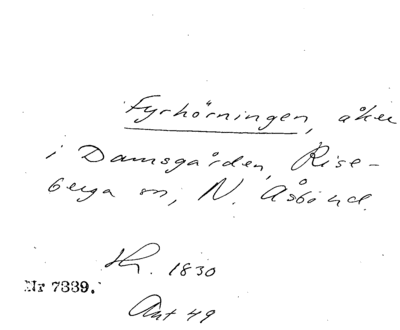 Fyrhörningen, åker
i Damsgården, Rise-
berga sn, N. Åsbo hd.
Hn. 1830
Nr 7339.
Ant 49